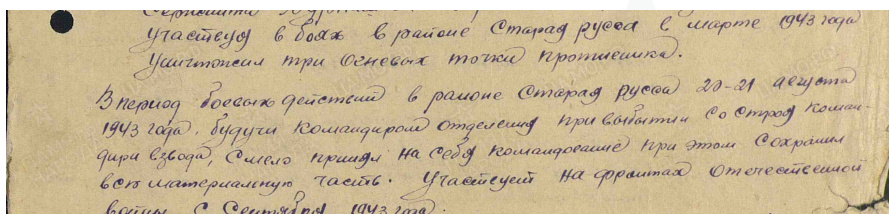 Участвуя в боях в районе Старая русса в марте 1943 года
Уничтожил три огневых точки противника.
В период боевых действий в районе Старая русса 20-21 августа
1943 года, будучи командиром отделения при выбытии со строя коман-
дира взвода, смело принял на себя командование при этом сохранил
всю материальную часть. Участвует на фронтах отечественной
войны с сентября 1943 года.